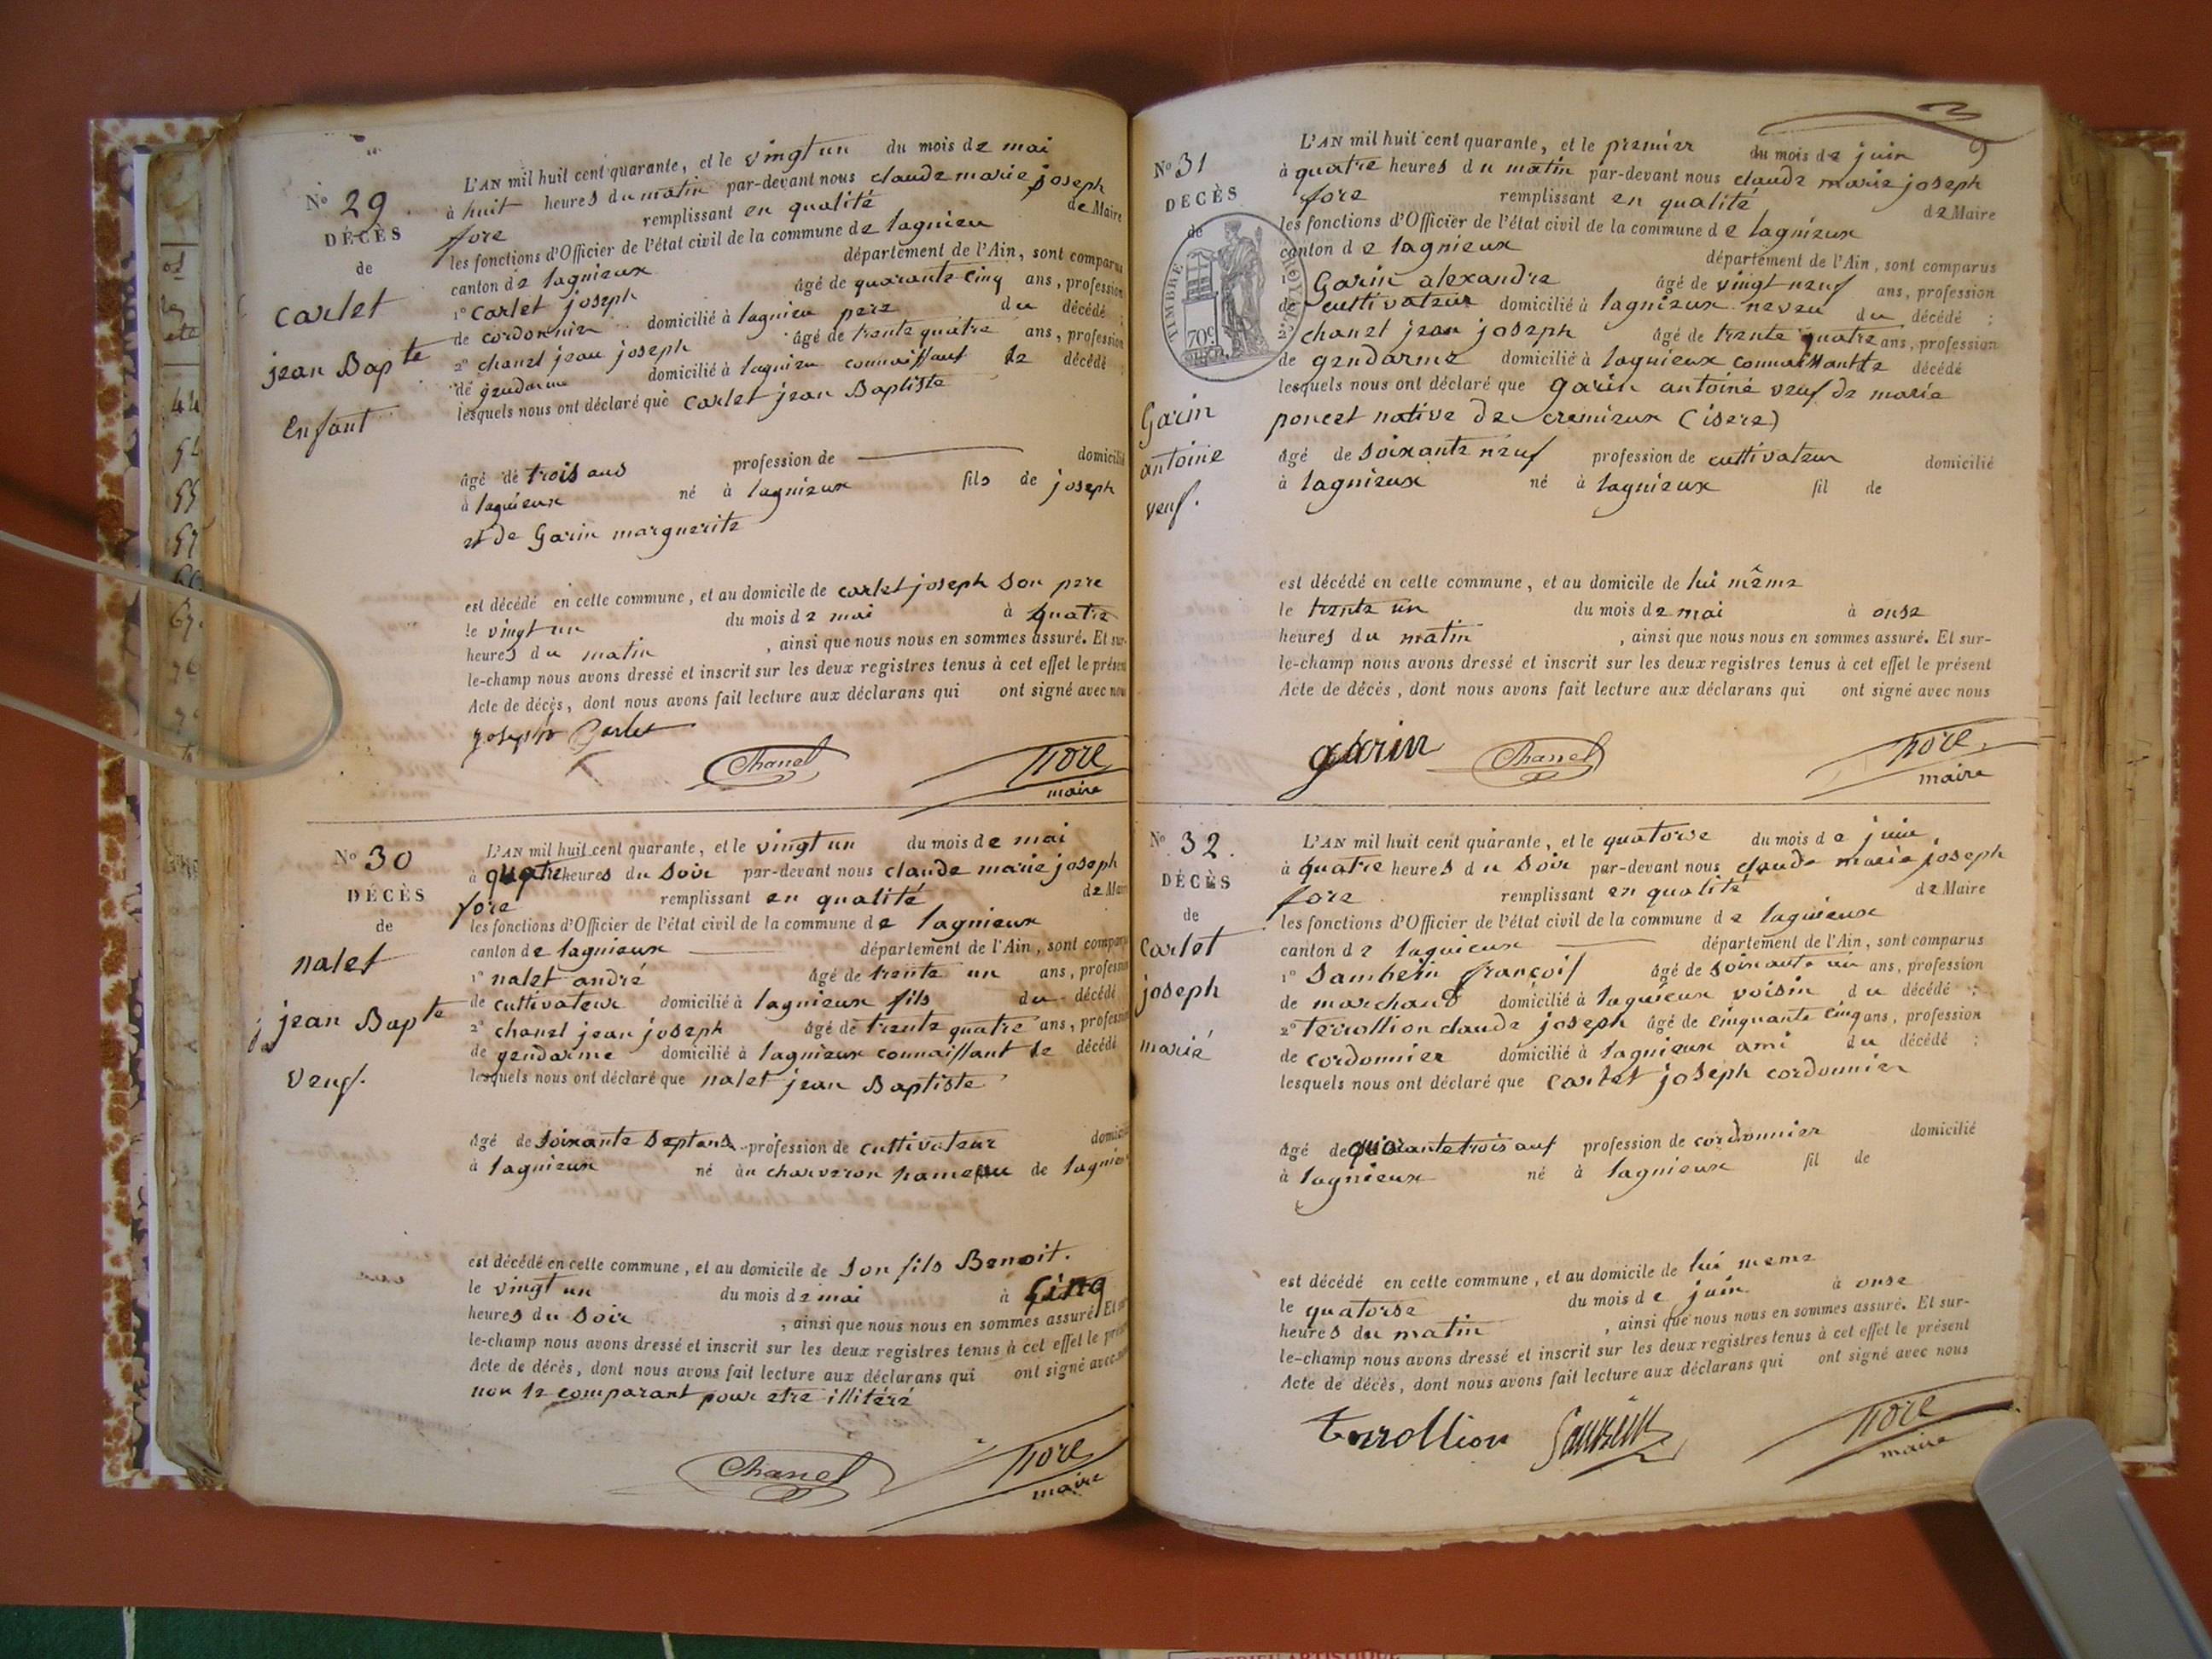 N° 29
DÉCÈS
de
carlet
jean Bapte
Enfant
L'AN mil huit cent quarante, et le vingt un du mois de mai
à huit heures du matin par-devant nous claude marie joseph
fore remplissant en qualité de Maire
les fonctions d'Officier de l'état civil de la commune de lagnieu
canton de lagnieux département de l'Ain, sont comparus
1° carlet joseph âgé de quarante cinq ans, profession
de cordonnier domicilié à lagnieu pere du décédé ;
2° chanel jean joseph âgé de trente quatre ans, profession
de gendarme domicilié à lagnieu connaissant le décédé ;
lesquels nous ont déclaré que carlet jean Baptiste
âgé de trois ans profession de domicilié
à lagnieux né à lagnieux fils de joseph
et de Garin marguerite
est décédé en cette commune, et au domicile de carlet joseph son pere
le vingt un du mois de mai à quatre
heures du matin , ainsi que nous nous en sommes assuré. Et sur-
le-champ nous avons dressé et inscrit sur les deux registres tenus à cet effet le présent
Acte de décès, dont nous avons fait lecture aux déclarans qui ont signé avec nous
joseph Carlet Chanel fore
maire
N° 30
DÉCÈS
de
nalet
jean Bapte
veuf.
L'AN mil huit cent quarante, et le vingt un du mois de mai
à quatre heures du soir par-devant nous claude marie joseph
fore remplissant en qualité de Maire
les fonctions d'Officier de l'état civil de la commune de lagnieux
canton de lagnieux département de l'Ain, sont comparus
1° nalet andré âgé de trente un ans, profession
de cultivateur domicilié à lagnieux fils du décédé
2° chanel jean joseph âgé de trente quatre ans, profession
de gendarme domicilié à lagnieux connaissant le décédé
lesquels nous ont déclaré que nalet jean Baptiste
âgé de soixante sept ans profession de cultivateur domicilié
à lagnieux né au charveron hameau de lagnieu
est décédé en cette commune, et au domicile de son fils Benoit.
le vingt un du mois de mai à cinq
heures du soir , ainsi que nous nous en sommes assuré. Et sur-
le-champ nous avons dressé et inscrit sur les deux registres tenus à cet effet le présent
Acte de décès, dont nous avons fait lecture aux déclarans qui ont signé avec nous
non le comparant pour etre illitéré
Chanel fore
maire
N° 31
DÉCÈS
de
TIMBRE ROYAL
70c
Garin
antoine
veuf.
L'AN mil huit cent quarante, et le premier du mois de juin
à quatre heures du matin par-devant nous claude marie joseph
fore remplissant en qualité de Maire
les fonctions d'Officier de l'état civil de la commune de lagnieux
canton de lagnieux département de l'Ain, sont comparus
1° Garin alexandre âgé de vingt neuf ans, profession
de cultivateur domicilié à lagnieux neveu du décédé ;
2° chanel jean joseph âgé de trente quatre ans, profession
de gendarme domicilié à lagnieux connaissant le décédé
lesquels nous ont déclaré que garin antoine veuf de marie
poncet native de cremieux (isere)
âgé de soixante neuf profession de cultivateur domicilié
à lagnieux né à lagnieux fil de
est décédé en cette commune, et au domicile de lui même
le trente un du mois de mai à onse
heures du matin , ainsi que nous nous en sommes assuré. Et sur-
le-champ nous avons dressé et inscrit sur les deux registres tenus à cet effet le présent
Acte de décès, dont nous avons fait lecture aux déclarans qui ont signé avec nous
garin Chanel fore
maire
N° 32.
DÉCÈS
de
Carlet
joseph
marié
L'AN mil huit cent quarante, et le quatorse du mois de juin
à quatre heures du soir par-devant nous claude marie joseph
fore remplissant en qualité de Maire
les fonctions d'Officier de l'état civil de la commune de lagnieux
canton de lagnieux département de l'Ain, sont comparus
1° françois âgé de soixante un ans, profession
de marchand domicilié à lagnieux voisin du décédé ;
2° terrollion claude joseph âgé de cinquante cinq ans, profession
de cordonnier domicilié à lagnieux ami du décédé ;
lesquels nous ont déclaré que carlet joseph cordonnier
âgé de quarante trois ans profession de cordonnier domicilié
à lagnieux né à lagnieux fil de
est décédé en cette commune, et au domicile de lui meme
le quatorse du mois de juin à onse
heures du matin , ainsi que nous nous en sommes assuré. Et sur-
le-champ nous avons dressé et inscrit sur les deux registres tenus à cet effet le présent
Acte de décès, dont nous avons fait lecture aux déclarans qui ont signé avec nous
terrollion fore
maire